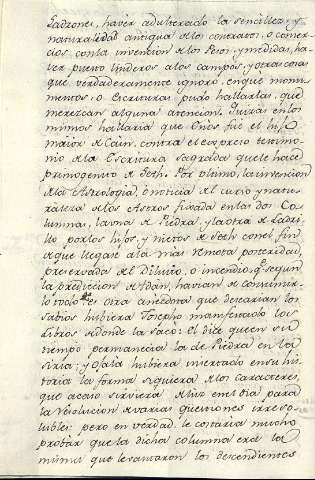 Ladrones, haver adulterado la sencillez, y
naturalidad antigua de los contratos, o comer-
cios con la invencion de los Pesos, y medidas, ha-
ver puesto linderos a los campos, y otras cosas
que verdaderamente ignoro, en que monu-
mentos, o Escrituras pudo hallarlas, que
merezcan alguna atencion. Quizas en los
mismos hallaria que Enos fue el hijo
maior de Cain, contra el expreso testimo-
nio de la Escritura sagrada que le hace
primogenito de Seth. Por ultimo, la invencion
de la Astrologia, o noticia del curso y natu-
raleza de los Astros fixada en las dos Co-
lumnas, la una de Piedra, y la otra de Ladri-
llo por los hijos, y nietos de Seth con el fin
de que llegase a la mas remota posteridad,
preservada del Diluvio, o incendio, que segun
la prediccion de Adan, havian de consumir-
lo todo es otra anecdota que desearian los
sabios hubiera Josepho manifestado los
Libros de donde la saco: El dice que en su
tiempo permanecia la de Piedra en la
Siria: y ojala hubiera insertado en su his-
toria la forma siquiera de los caracteres,
que acaso sirviera de luz en el dia para
la resolucion de varias questiones irreso-
lubles: pero en verdad le costaria mucho
probar que la dicha columna era la
misma que levantaron los descendientes